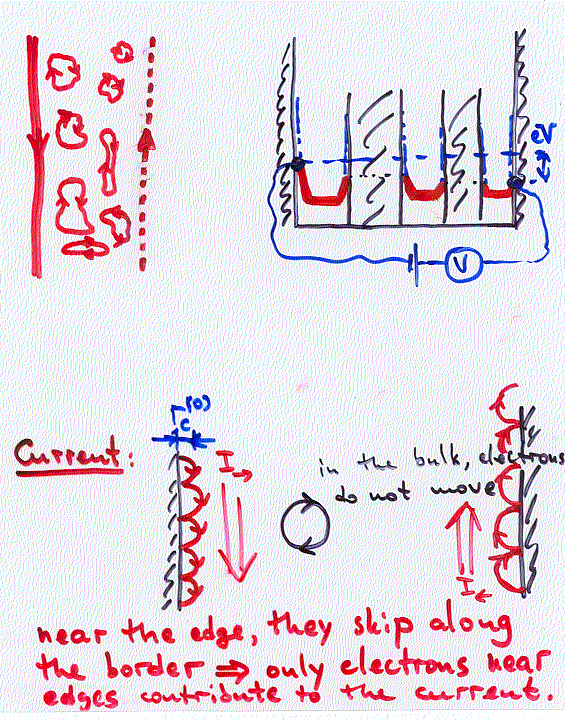 eV
V
r_c^(0)
Current:
I→
in the bulk, electrons
do not move
I←
near the edge, they skip along
the border ⇒ only electrons near
edges contribute to the current.